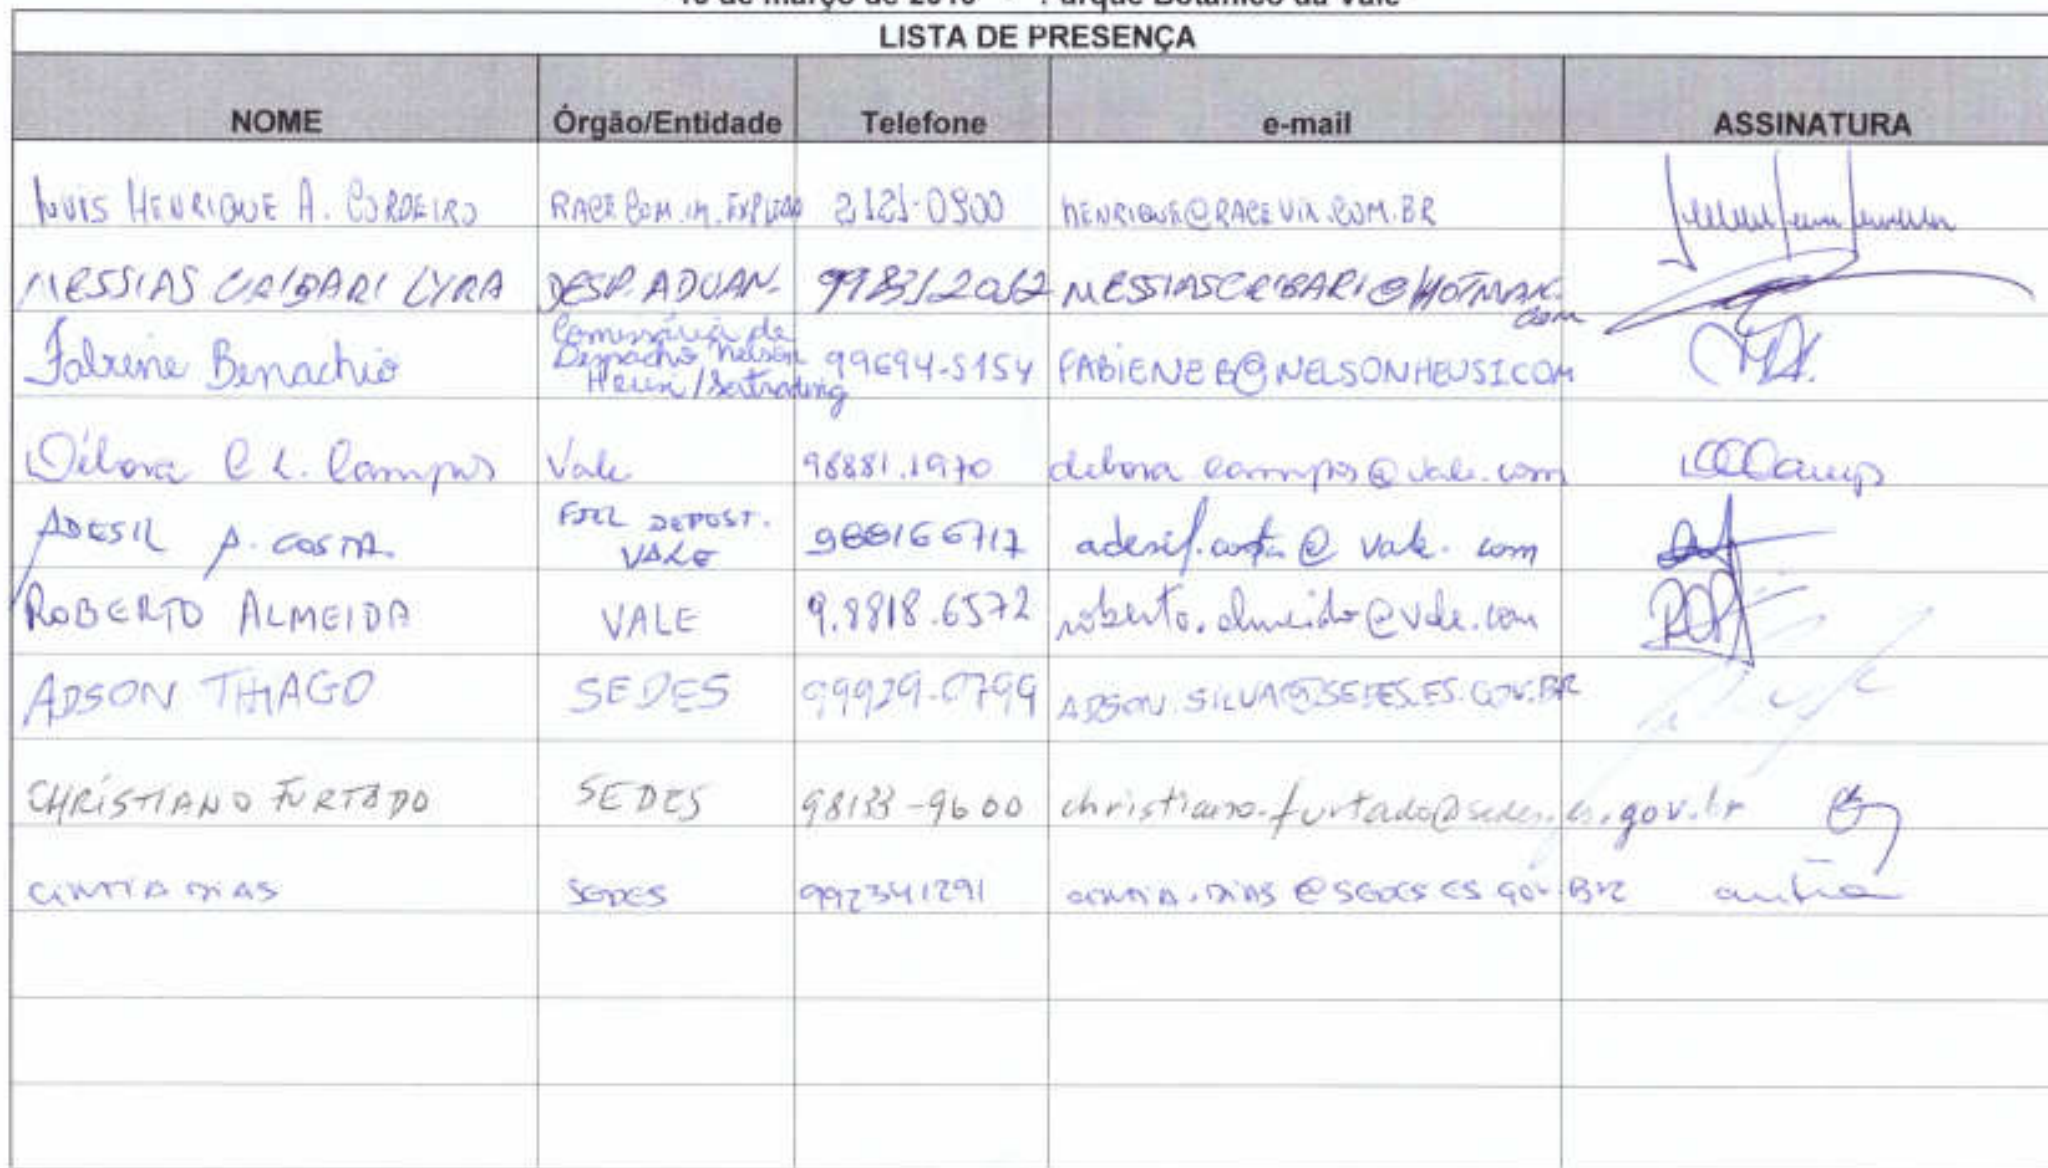 de março de 2016 - Parque Botânico da Vale
LISTA DE PRESENÇA
NOME Órgão/Entidade Telefone e-mail ASSINATURA
LUIS HENRIQUE A. CORDEIRO RACE COM. IM. 2121-0900 HENRIQUE@RACEVIX.COM.BR
MESSIAS CRIBARI LYRA DESP. ADUAN. 998312062 MESSIASCRIBARI@HOTMAIL.
com
Fabiene Benachio Comissária de
Despacho Nelson
Heusi/Sertrading 99694-5154 FABIENEB@NELSONHEUSI.COM
Débora C L. Campos Vale 98881.1970 debora campos@vale.com
ADESIL A. COSTA. VALE 988166717 adesil.costa@vale.com
ROBERTO ALMEIDA VALE 9.8818.6572 roberto.almeida@vale.com
ADSON THIAGO SEDES 99929-0799 ADSON.SILVA@SEDES.ES.GOV.BR
CHRISTIANO FURTADO SEDES 98133-9600 christiano.furtado@sedes.es.gov.br
CINTIA DIAS SEDES 992341291 CINTIA.DIAS@SEDES ES GOV.BR cintia